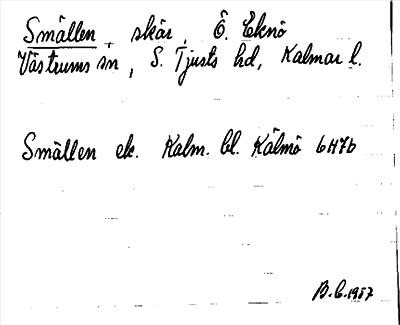 Smällen, skär, Ö. Eknö
Västrums sn, S. Tjusts hd, Kalmar l.
Smällen ek. Kalm. bl. Kälmö 6H7b
B.C. 1957